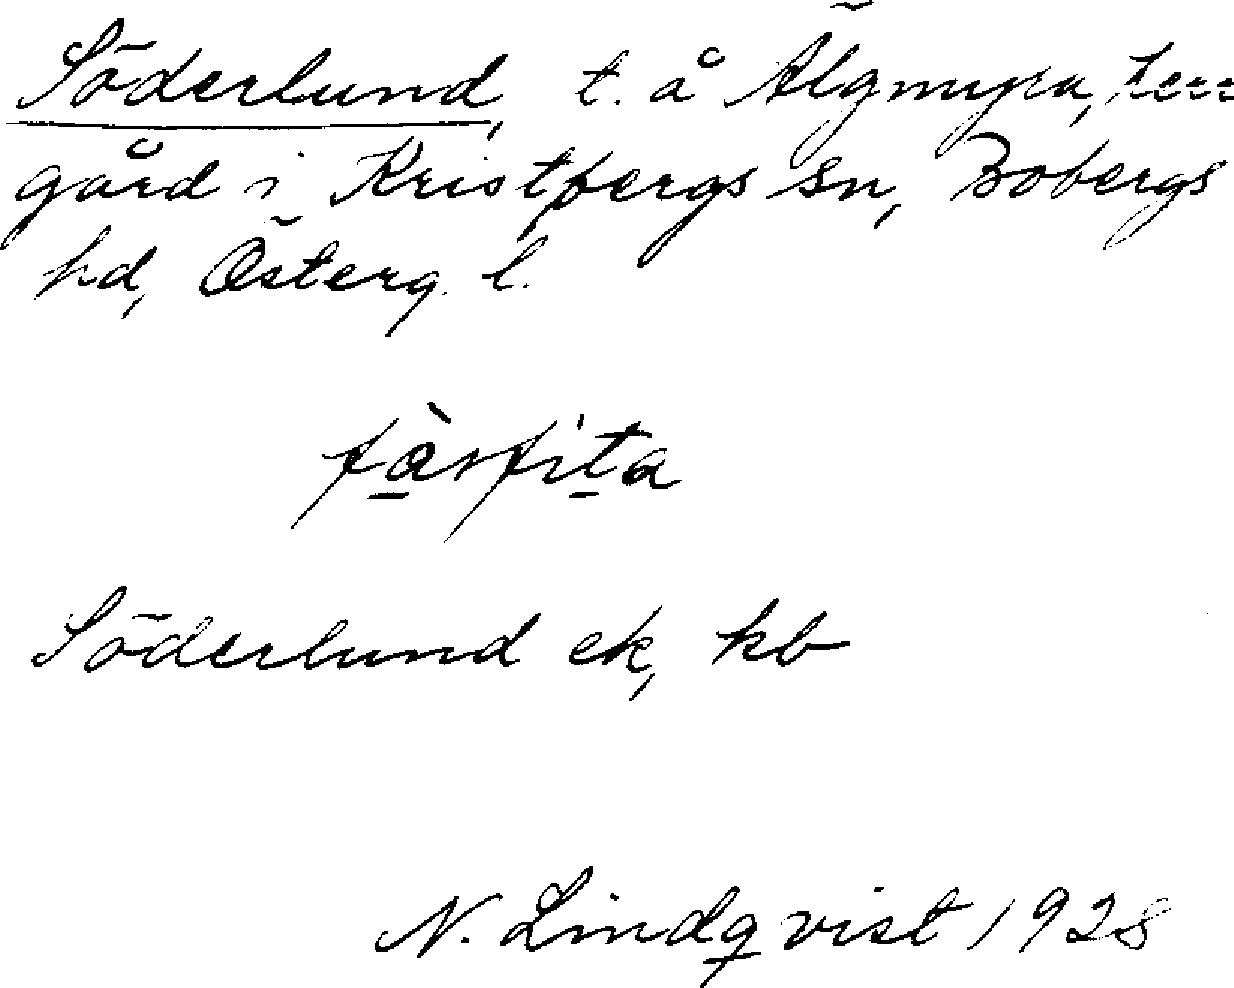 Söderlund, t. å Älgmyra, herr
gård i Kristbergs sn, Bobergs
hd, Österg. l.
Söderlund ek, kb
N. Lindqvist 1928